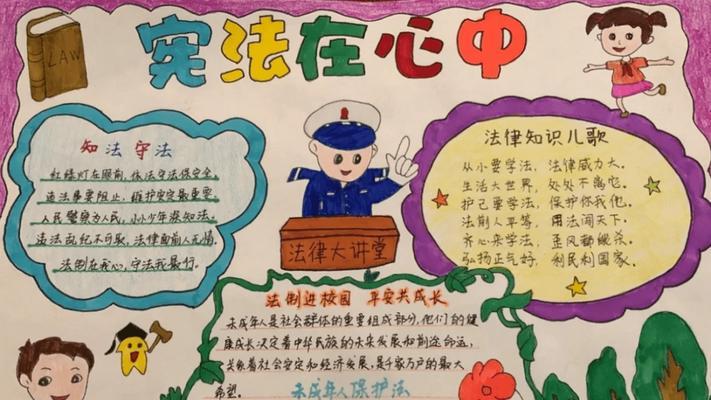 LAW
宪法在心中
知法守法
红绿灯在眼前,依法守法保安全
违法事要阻止,维护安定最重要
人民警察为人民,小小少年深知法。
违法乱纪不可取,法律面前人无情。
法制在我心,守法我最行。
法律大讲堂
法律知识儿歌
从小要学法,法律威力大。
生活大世界,处处不离它。
护己要学法,保护你我他。
法制人平等,用法闯天下。
齐心来学法,歪风都能杀。
弘扬正气好,利民利国家。
法制进校园 平安共成长
未成年人是社会群体的重要组成部分,他们的健
康成长决定着中华民族的未来发展和前途命运,
关系着社会安定和经济发展,是千家万户的最大
希望。
未成年人保护法